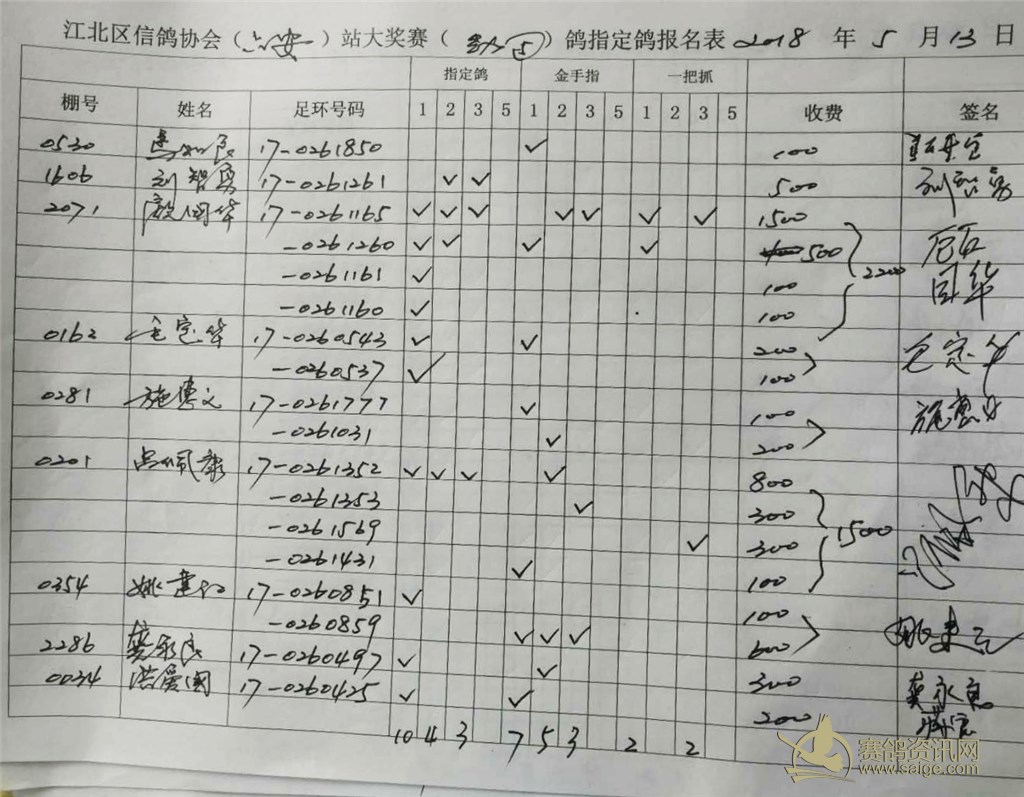 江北区信鸽协会（六安）站大奖赛（ ）鸽指定鸽报名表 2018 年 5 月 13 日
指定鸽 金手指 一把抓
棚号 姓名 足环号码 1 2 3 5 1 2 3 5 1 2 3 5 收费 签名
0530 17-0261850 ✓ 100
1606 刘智勇 17-0261261 ✓ ✓ 500 刘智勇
2071 国华 17-0261165 ✓ ✓ ✓ ✓ ✓ ✓ ✓ 1500
-0261260 ✓ ✓ ✓ ✓ 500 2200 国华
-0261161 ✓ 100
-0261160 ✓ 100
0162 定华 17-0260543 ✓ ✓ 200 定华
-0260537 ✓ 100
0281 施 17-0261777 ✓ 100 施
-0261031 ✓ 200
0201 17-0261352 ✓ ✓ ✓ ✓ 800
-0261353 ✓ 300
-0261569 ✓ 300 1500
-0261431 ✓ 100
0354 姚建 17-0260851 ✓ 100
-0260859 ✓ ✓ ✓ 600
2286 龚永良 17-0260497 ✓ ✓ 300 龚永良
0034 洪爱国 17-0260425 ✓ ✓ 200
10 4 3 7 5 3 2 2
赛鸽资讯网
www.saige.com